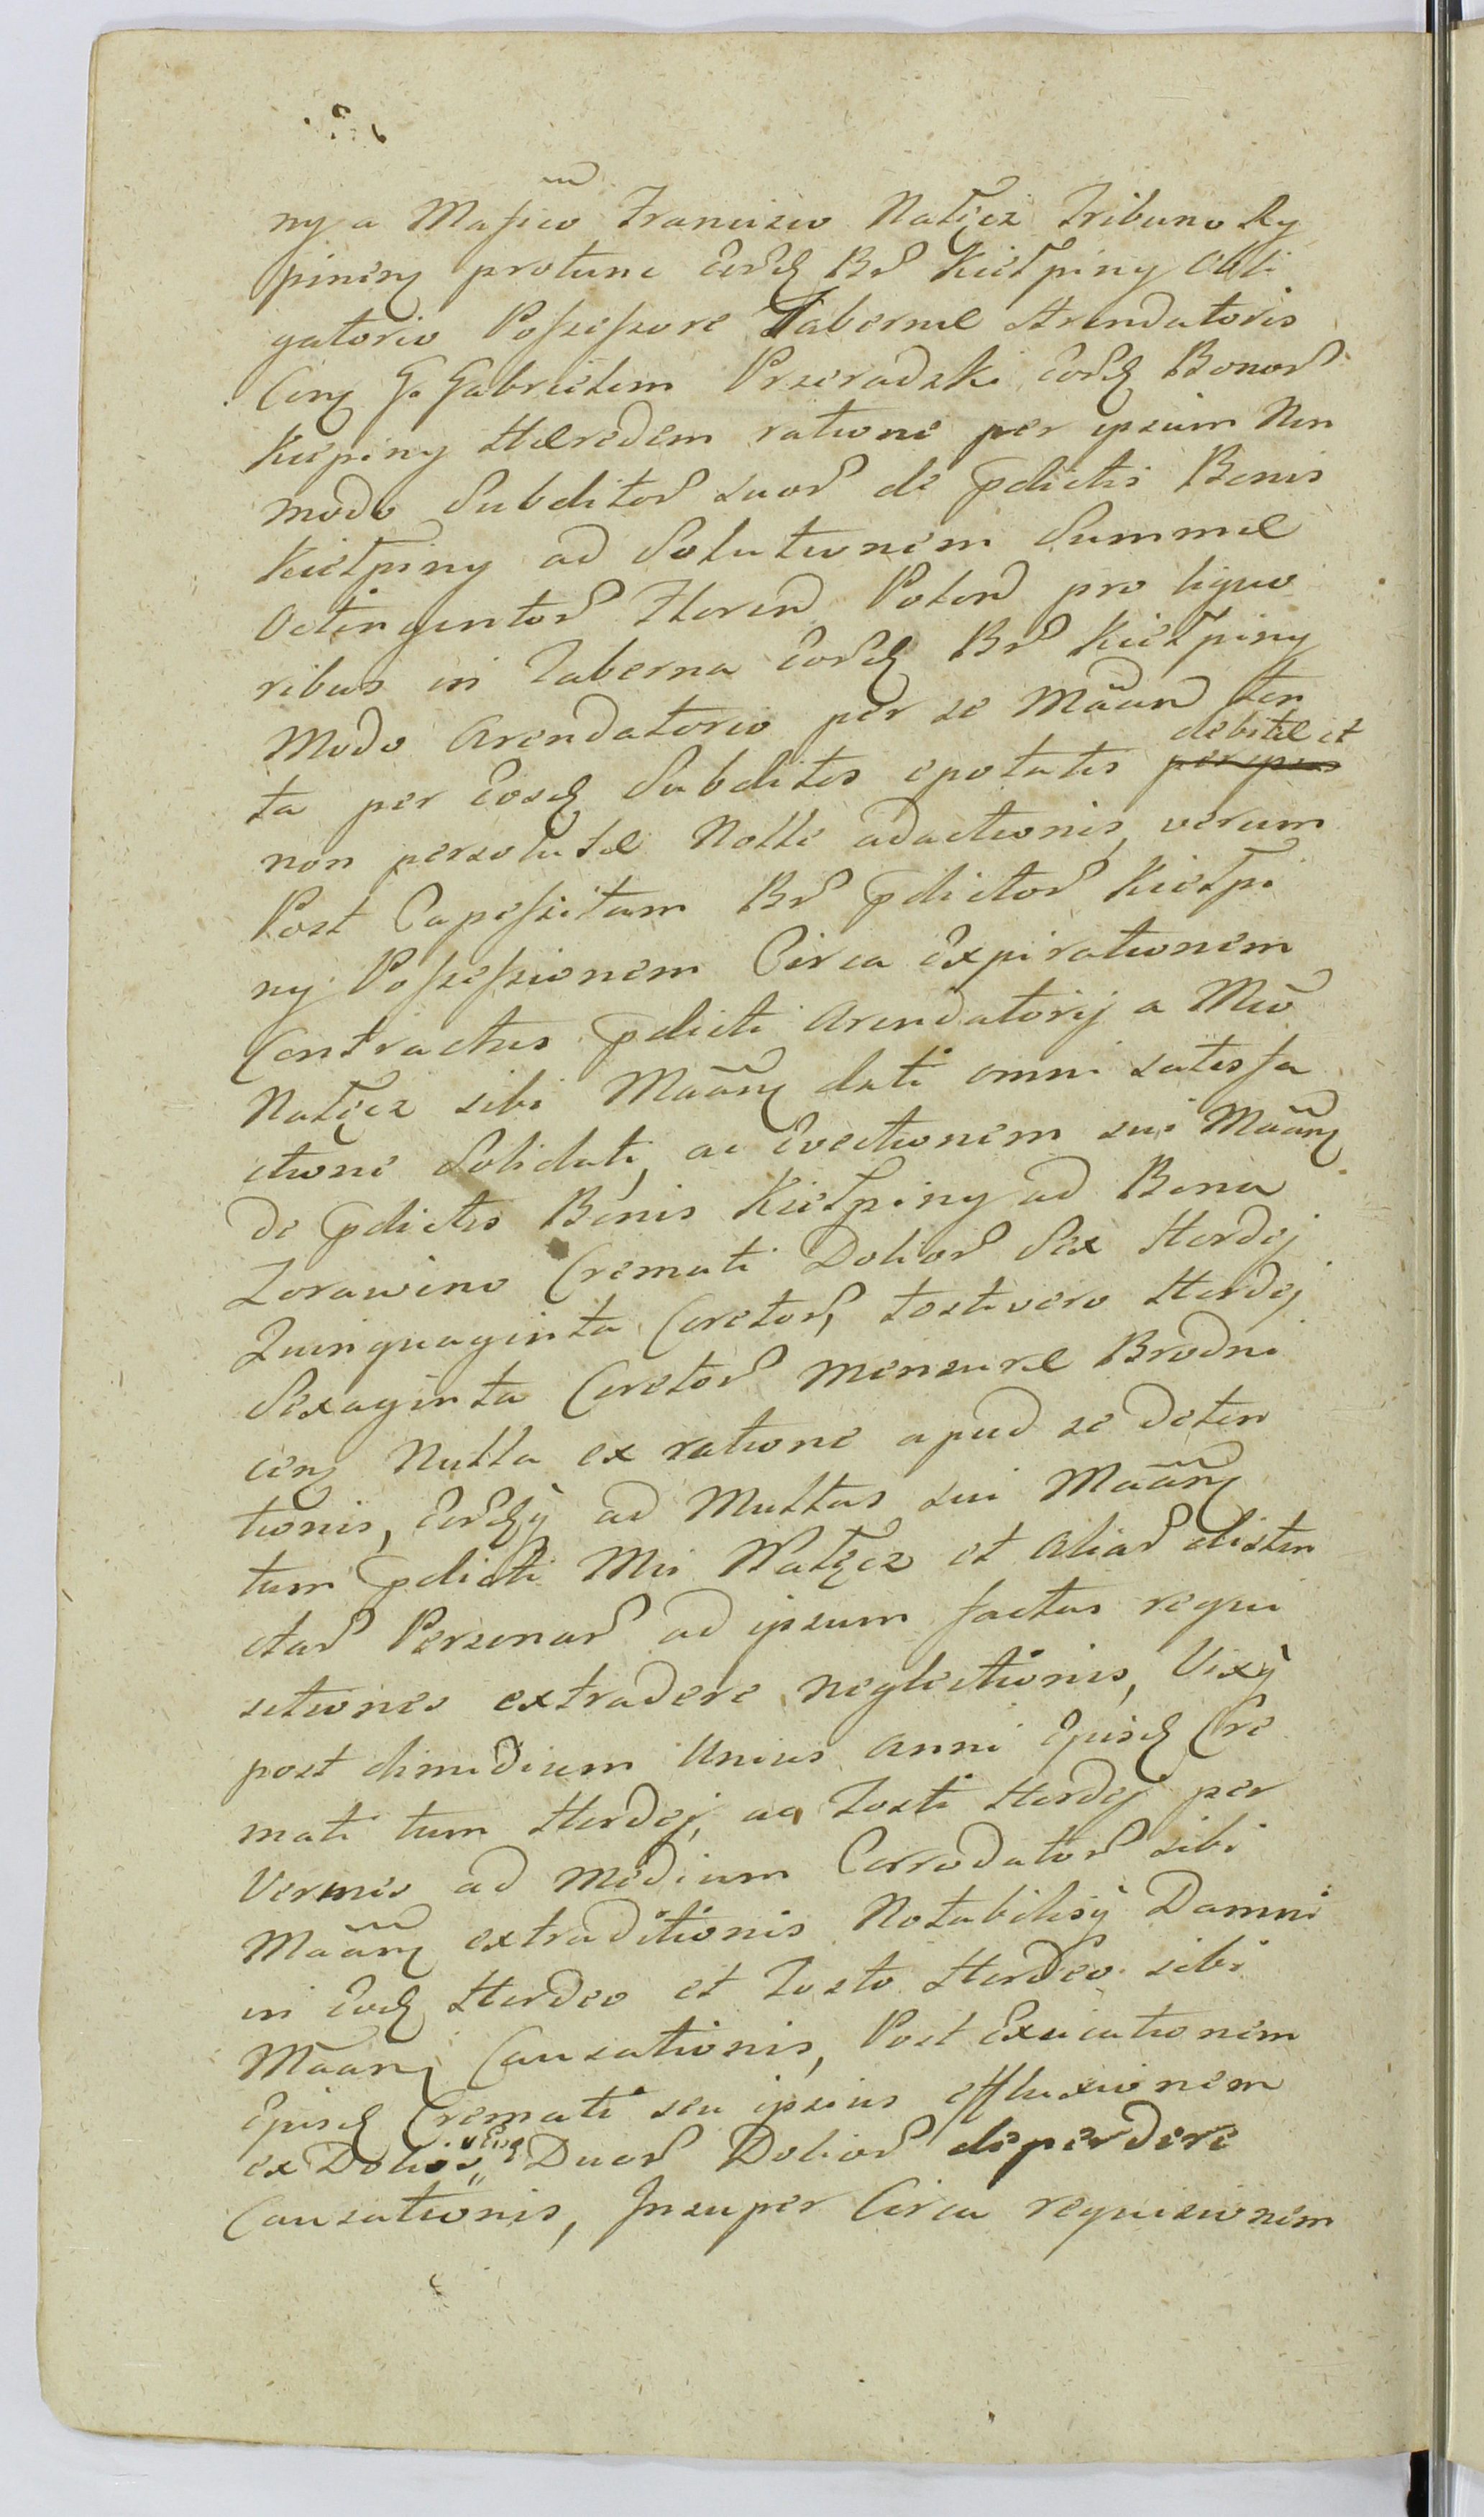 ny a Mafico Francisco Nałęcz Tribuno Ry
pinens protunc eord Br Kiełpiny Obli
gatorio Possessore Tabernæ Arendatoris
Cong G. Gabrielem Przeradzki eord Bonor
Kiepiny Hæredem ratione per ipsum Non
modo Subditor suor de pdictis Bonis
Kiełpiny ad Solutionem Summæ
Octingentor Floren Polon pro liquo
ribus in Taberna eord Br Kiełpiny
Modo Arendatorio per se Mãan ten
ta per eosd Subditos epotatis debitæ et
non persolutæ Nolle adactionis, verum
Post Capessitam Br pdictor Kiełpi
ny Possessionem Circa Expirationem
Contractus pdicti Arendatorij a Mco
Nałęcz sibi Mããn dati omni satisfa
ctione Solidati, ac Evectionem sui Mããn
de pdictis Bonis Kiełpiny ad Bona
Zorawino Cremati Dolior Sex Hordej
Quinquaginta Coretor, tosti vero Hordej
Sexaginta Coretor mensuræ Brodni
cen Nulla ex ratione apud se deten
tionis, eordq ad Multas sui Mããn
tum pdicti Mci Nałęcz et aliar distin
ctar Personar ad ipsum factas requi
sitiones extradere neglectionis, Vixq
post dimidium Unius anni Ejusd Cre
mati tum Hordej, ac Tosti Hordej per
Vermes ad medium Corrodator sibi
Mããn extraditionis Notabilisq Damni
in Eod Hordeo et Tosto Hordeo sibi
Mããn Causationis, Post Exsicationem
Ejusd Cremati seu ipsius effluxionem
ex Dolios Duor Dolior deperdere
Causationis, Insuper Circa requisionem